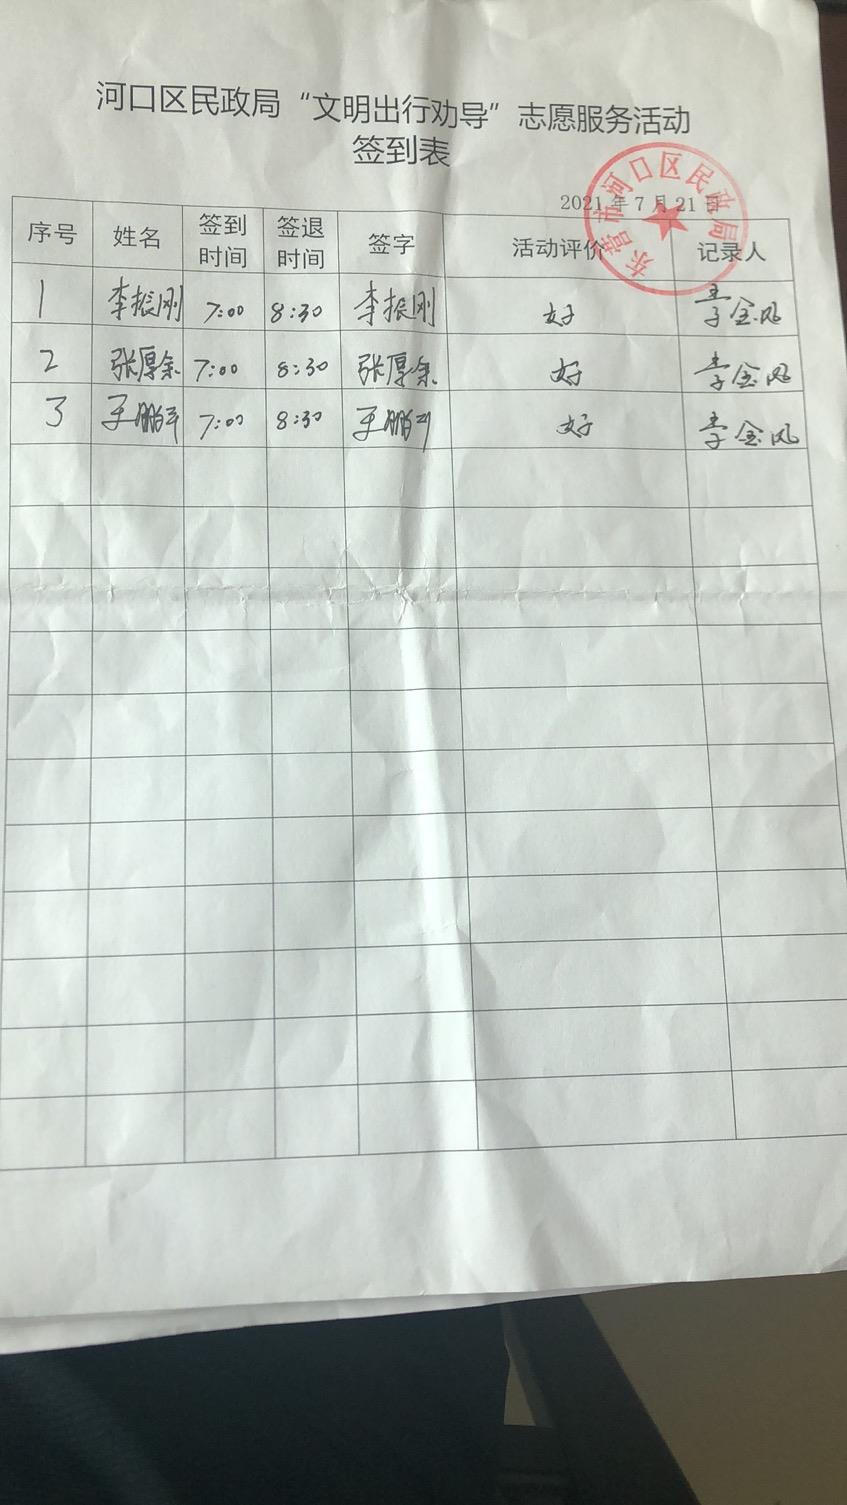 河口区民政局“文明出行劝导”志愿服务活动
签到表
2021年7月21日
东营市河口区民政局
序号 姓名 签到时间 签退时间 签字 活动评价 记录人
1 李振刚 7:00 8:30 李振刚 好 李金凤
2 张厚余 7:00 8:30 张厚余 好 李金凤
3 王鹏 7:00 8:30 王鹏 好 李金凤